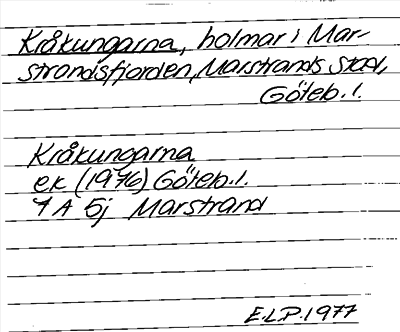 Kråkungarna, holmar i Mar-
strandsfjorden, Marstrands stad,
Göteb. l.
Kråkungarna
ek (1976) Göteb. l.
7 A 5j Marstrand
E.L.P. 1977